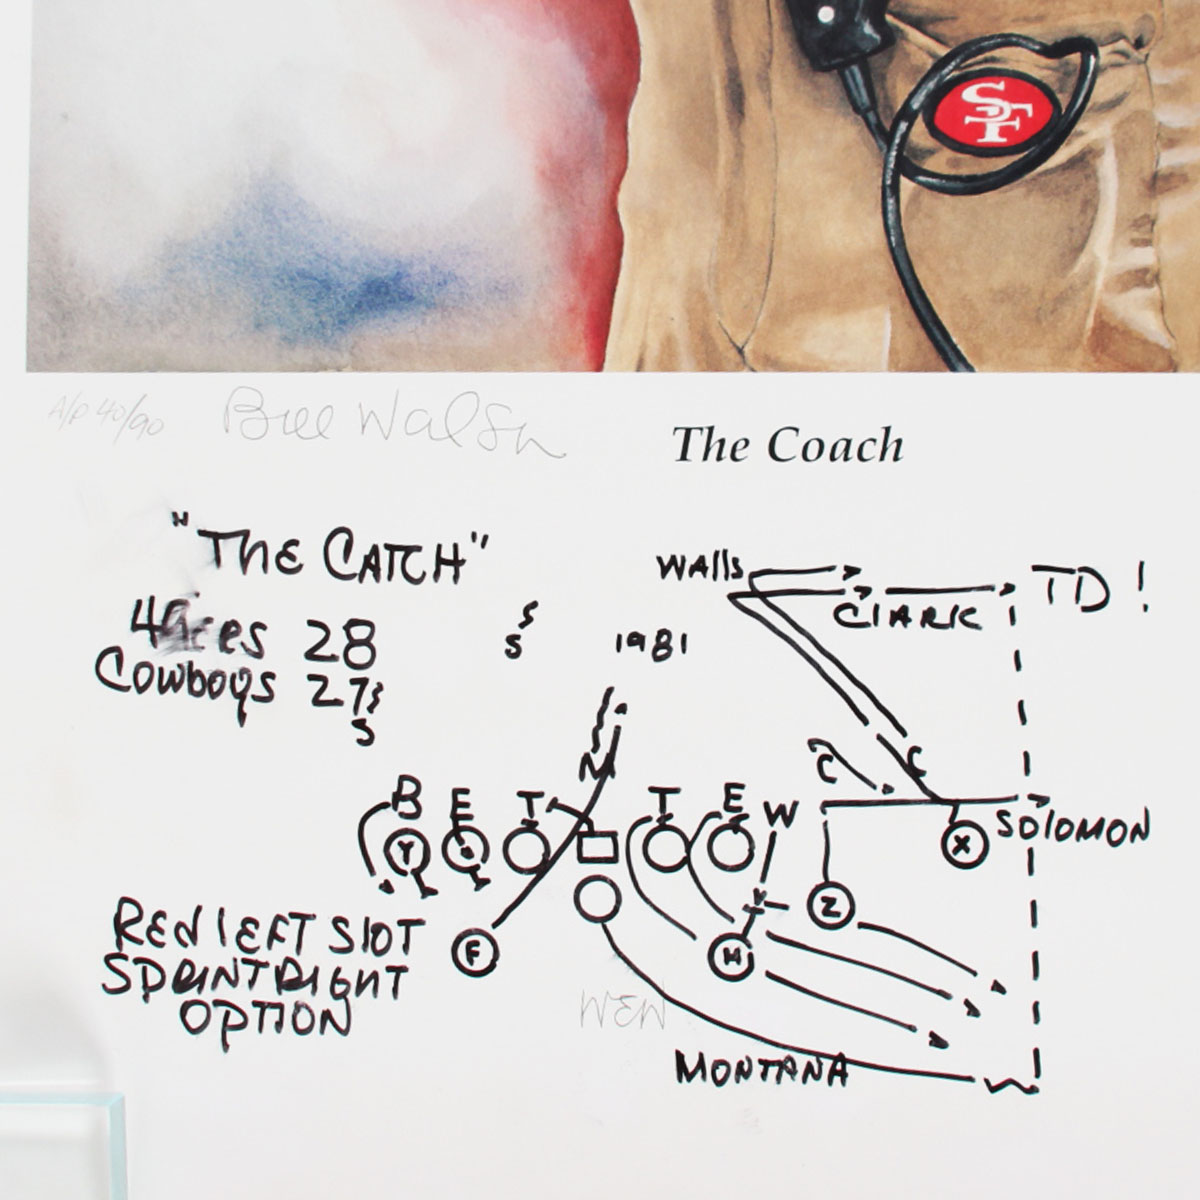 SF
A/P 40/90
Bill Walsh
The Coach
"THE CATCH"
49ers 28
Cowboys 27
S
S
S
1981
WALLS
CLARK
TD!
M
C
C
B E T T E W
Y
X
SOLOMON
Z
F
H
RED LEFT SLOT
SPRINT RIGHT
OPTION
WEW
MONTANA